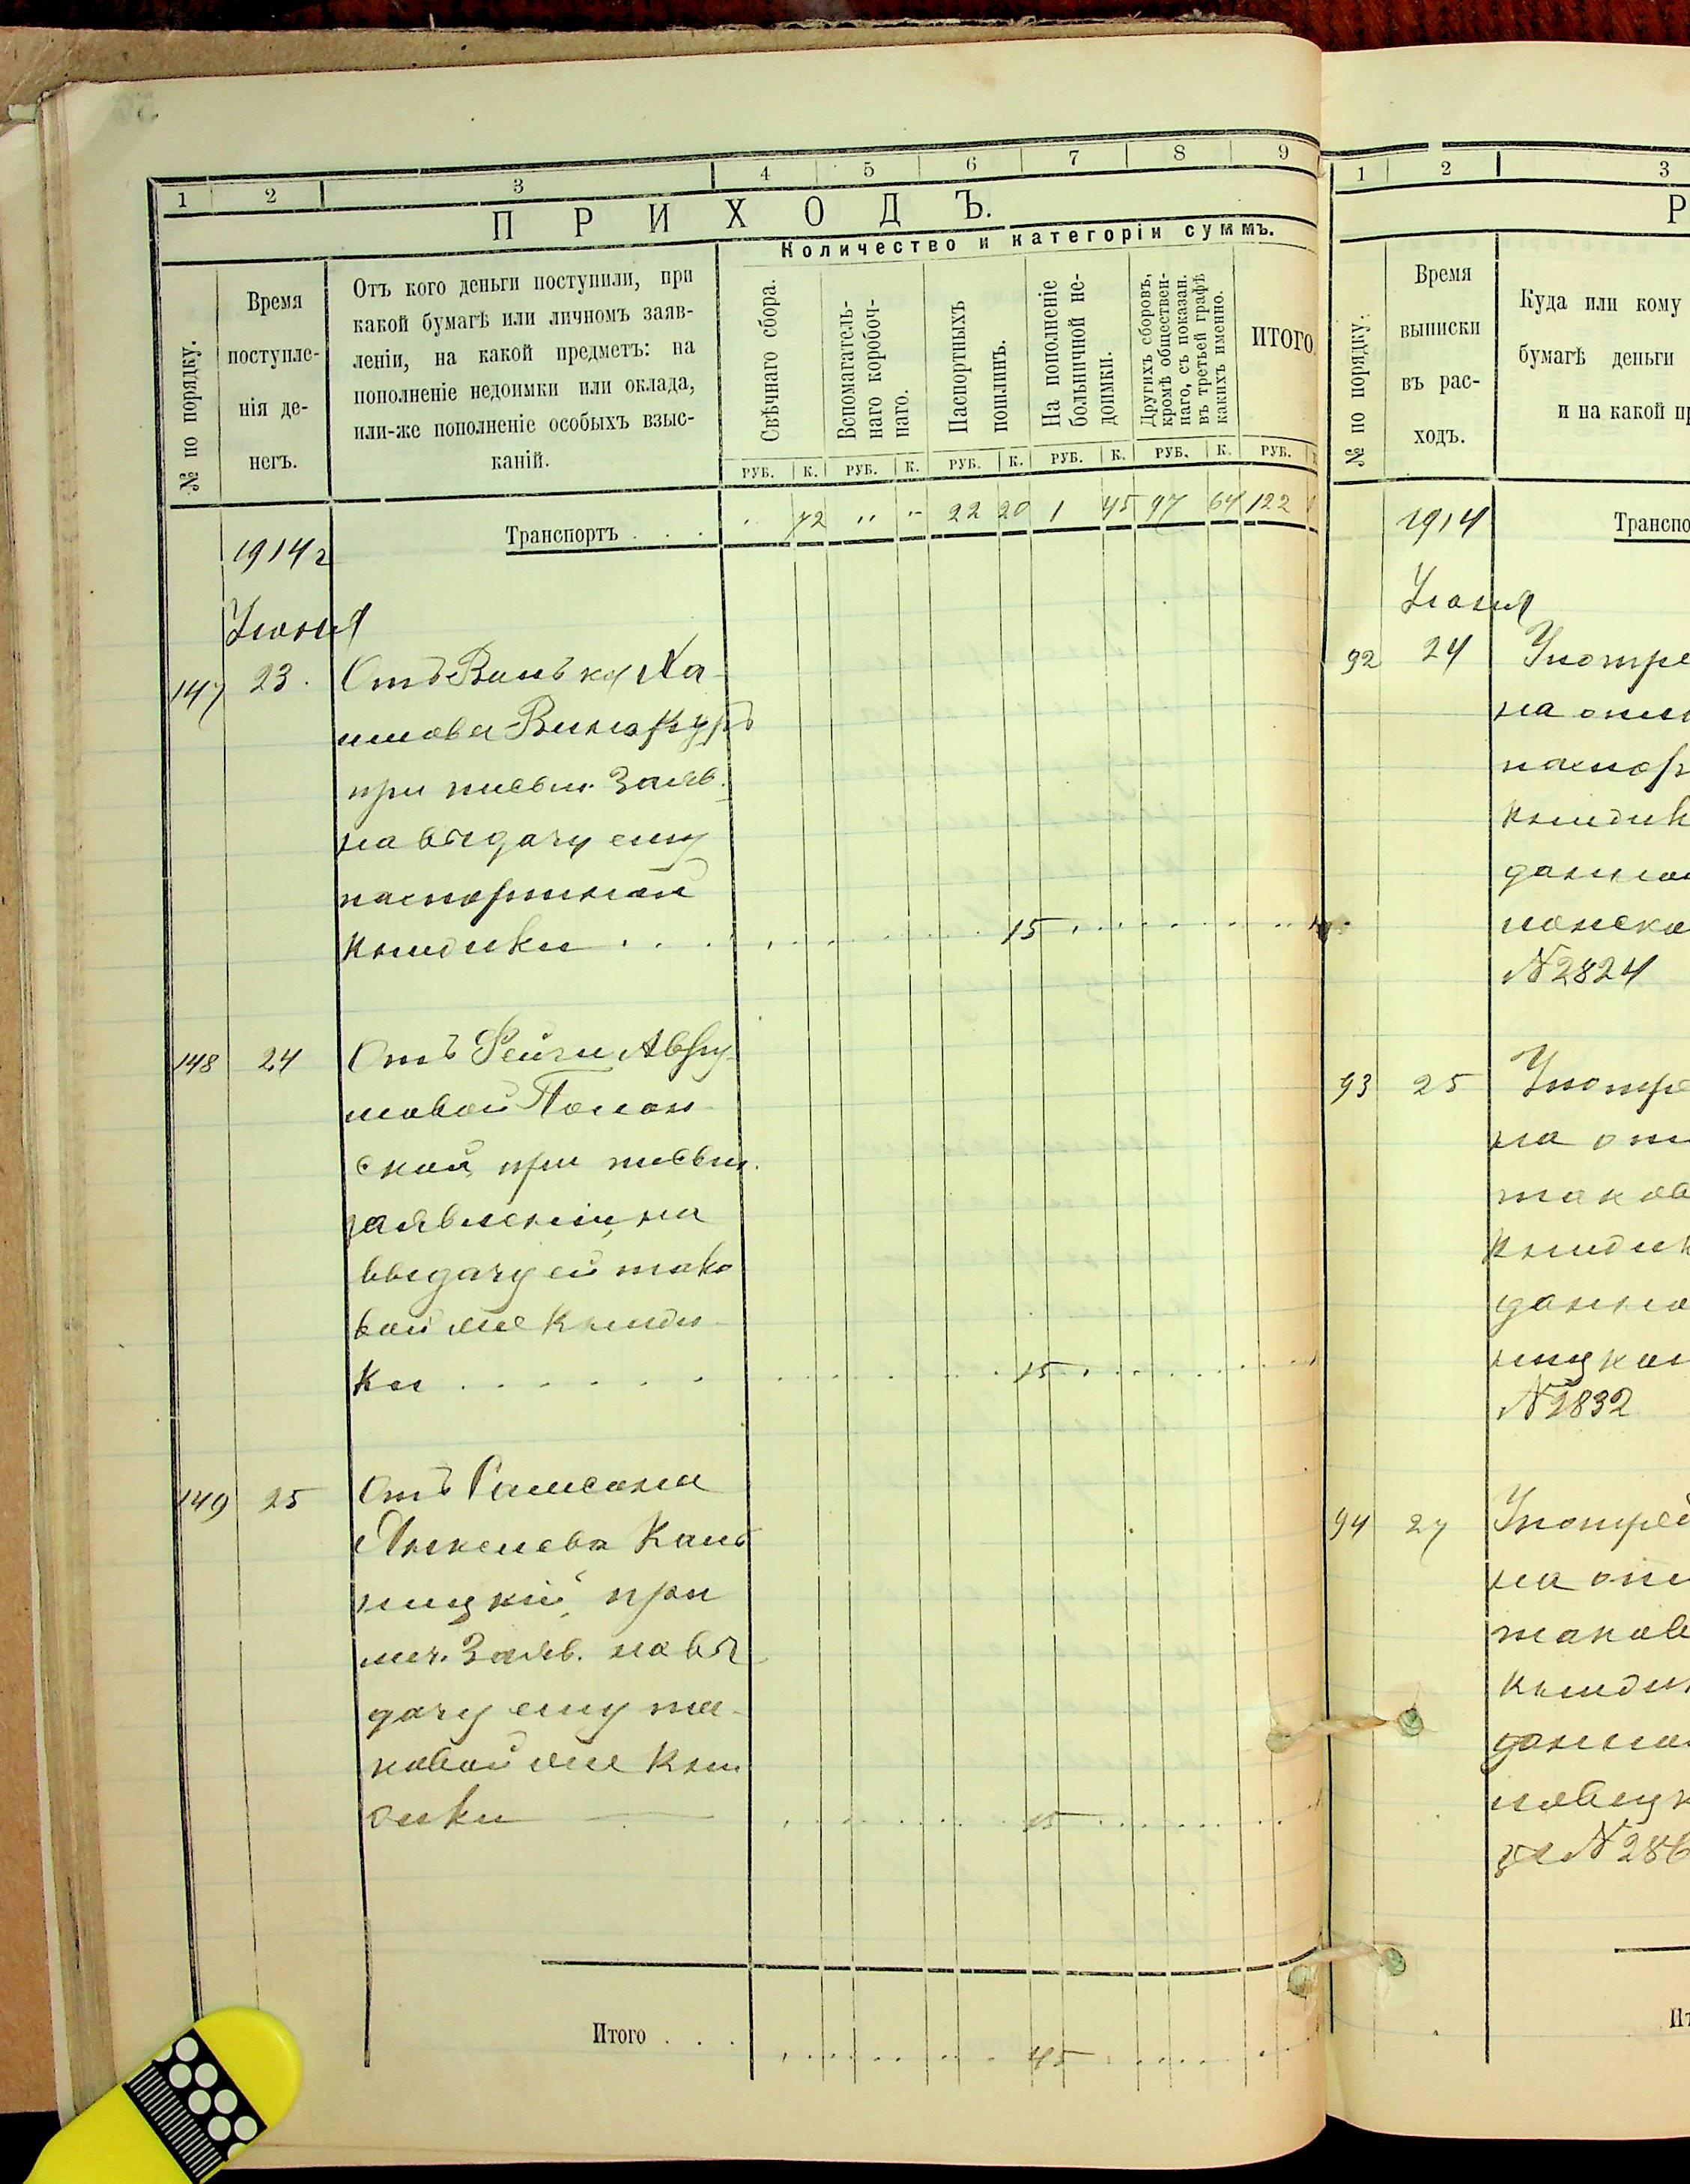 1 2 3 4 5 6 7 8 9
ПРИХОДЪ.
Количество и категоріи суммъ.
№ по порядку.
Время
поступле-
нія де-
негъ.
Отъ кого деньги поступили, при
какой бумагѣ или личномъ заяв-
леніи, на какой предметъ: на
пополненіе недоимки или оклада,
или-же пополненіе особыхъ взыс-
каній.
Свѣчнаго сбора.
Вспомагатель-
наго коробоч-
наго.
Паспортныхъ
пошлинъ.
На пополненіе
больничной не-
доимки.
Другихъ сборовъ,
кромѣ обществен-
наго, съ показан.
въ третьей графѣ
какихъ именно.
ИТОГО.
РУБ. К. РУБ. К. РУБ. К. РУБ. К. РУБ. К. РУБ.
Транспортъ . . . " 72 " " 22 20 1 45 97 64 122
1914 г
Іюня
147 23. Отъ Ха
имова Винокуръ
при писем. Заяв.
на выдачу ему
паспортной
книжки . . . 15
148 24 Отъ Авру-
мовой Полон-
ской, при писем.
заявленіи, на
выдачу ей тако
вой же книж-
ки . . . . . . 15
149 25 Отъ
Канев
ницкій, при
лич. Заяв. на вы-
дачу ему та-
ковой же кни
жки 15
Итого . . . 45
1 2 3
Р
№ по порядку.
Время
выписки
въ рас-
ходъ.
Куда или кому
бумагѣ деньги
и на какой пр
Транспо
1914
Іюня
92 24 Употре
на опл
паспор
книжк
данно
лонско
№ 2824
93 25 Употре
на опл
таков
книжк
данно
ницко
№ 2832
94 27 Употреб
на опл
таков
книжк
данно
новицк
за № 286
Ит